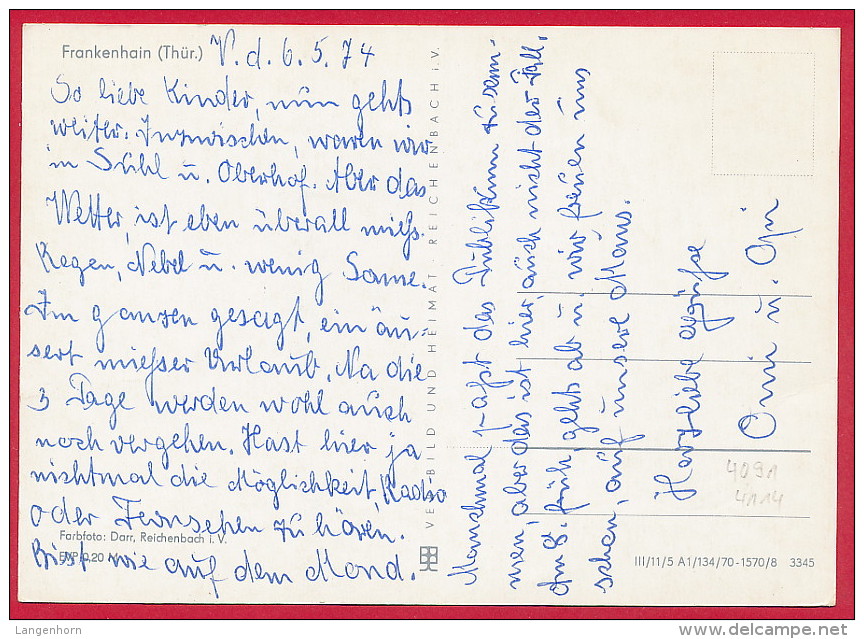 Frankenhain (Thür.)
V. d. 6. 5. 74
So liebe Kinder, nun gehts
weiter. Inzwischen, waren wir
in Suhl u. Oberhof. Aber das
Wetter, ist eben überall mieß.
Regen, Nebel u. wenig Sonne.
Im ganzen gesagt, ein äu-
sert miesser Urlaub. Na die
3 Tage werden wohl auch
noch vergehen. Hast hier ja
nichtmal die Möglichkeit, Radio
oder Fernsehen zu hören.
Bist wie auf dem Mond.
Farbfoto: Darr, Reichenbach i. V.
EVP 0,20
VERLAG BILD UND HEIMAT REICHENBACH i. V.
Manchmal paßt das Publikum zusam-
men, aber das ist hier, auch nicht der Fall.
Am 8. früh, gehts ab u. wir freuen uns
schon, auf unsere Maus.
Herzliebe Grüsse
Omi u. Opi
4091
4114
III/11/5 A1/134/70-1570/8 3345
Langenhorn
delcampe.net